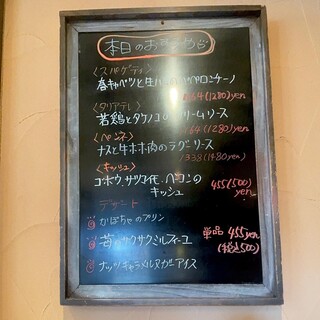 本日のおすすめ
〈スパゲティ〉
春キャベツと生ハムのペペロンチーノ
1164(1280)yen
〈タリアテレ〉
若鶏とタケノコのクリームソース
1164(1280)yen
〈ペンネ〉
ナスと牛ホホ肉のラグーソース
(1480)yen
〈キッシュ〉
ゴボウ、サツマイモ、ベーコンの
キッシュ 455(500)yen
デザート
かぼちゃのプリン
苺のサクサクミルフィーユ
単品 455yen
(税込500)
ナッツキャラメルヌガーアイス